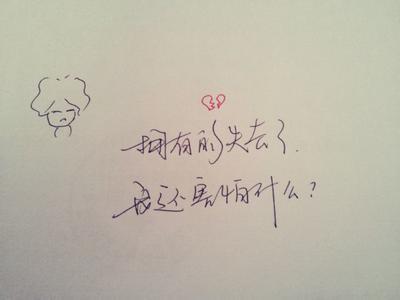 拥有的失去了.
我还害怕什么?